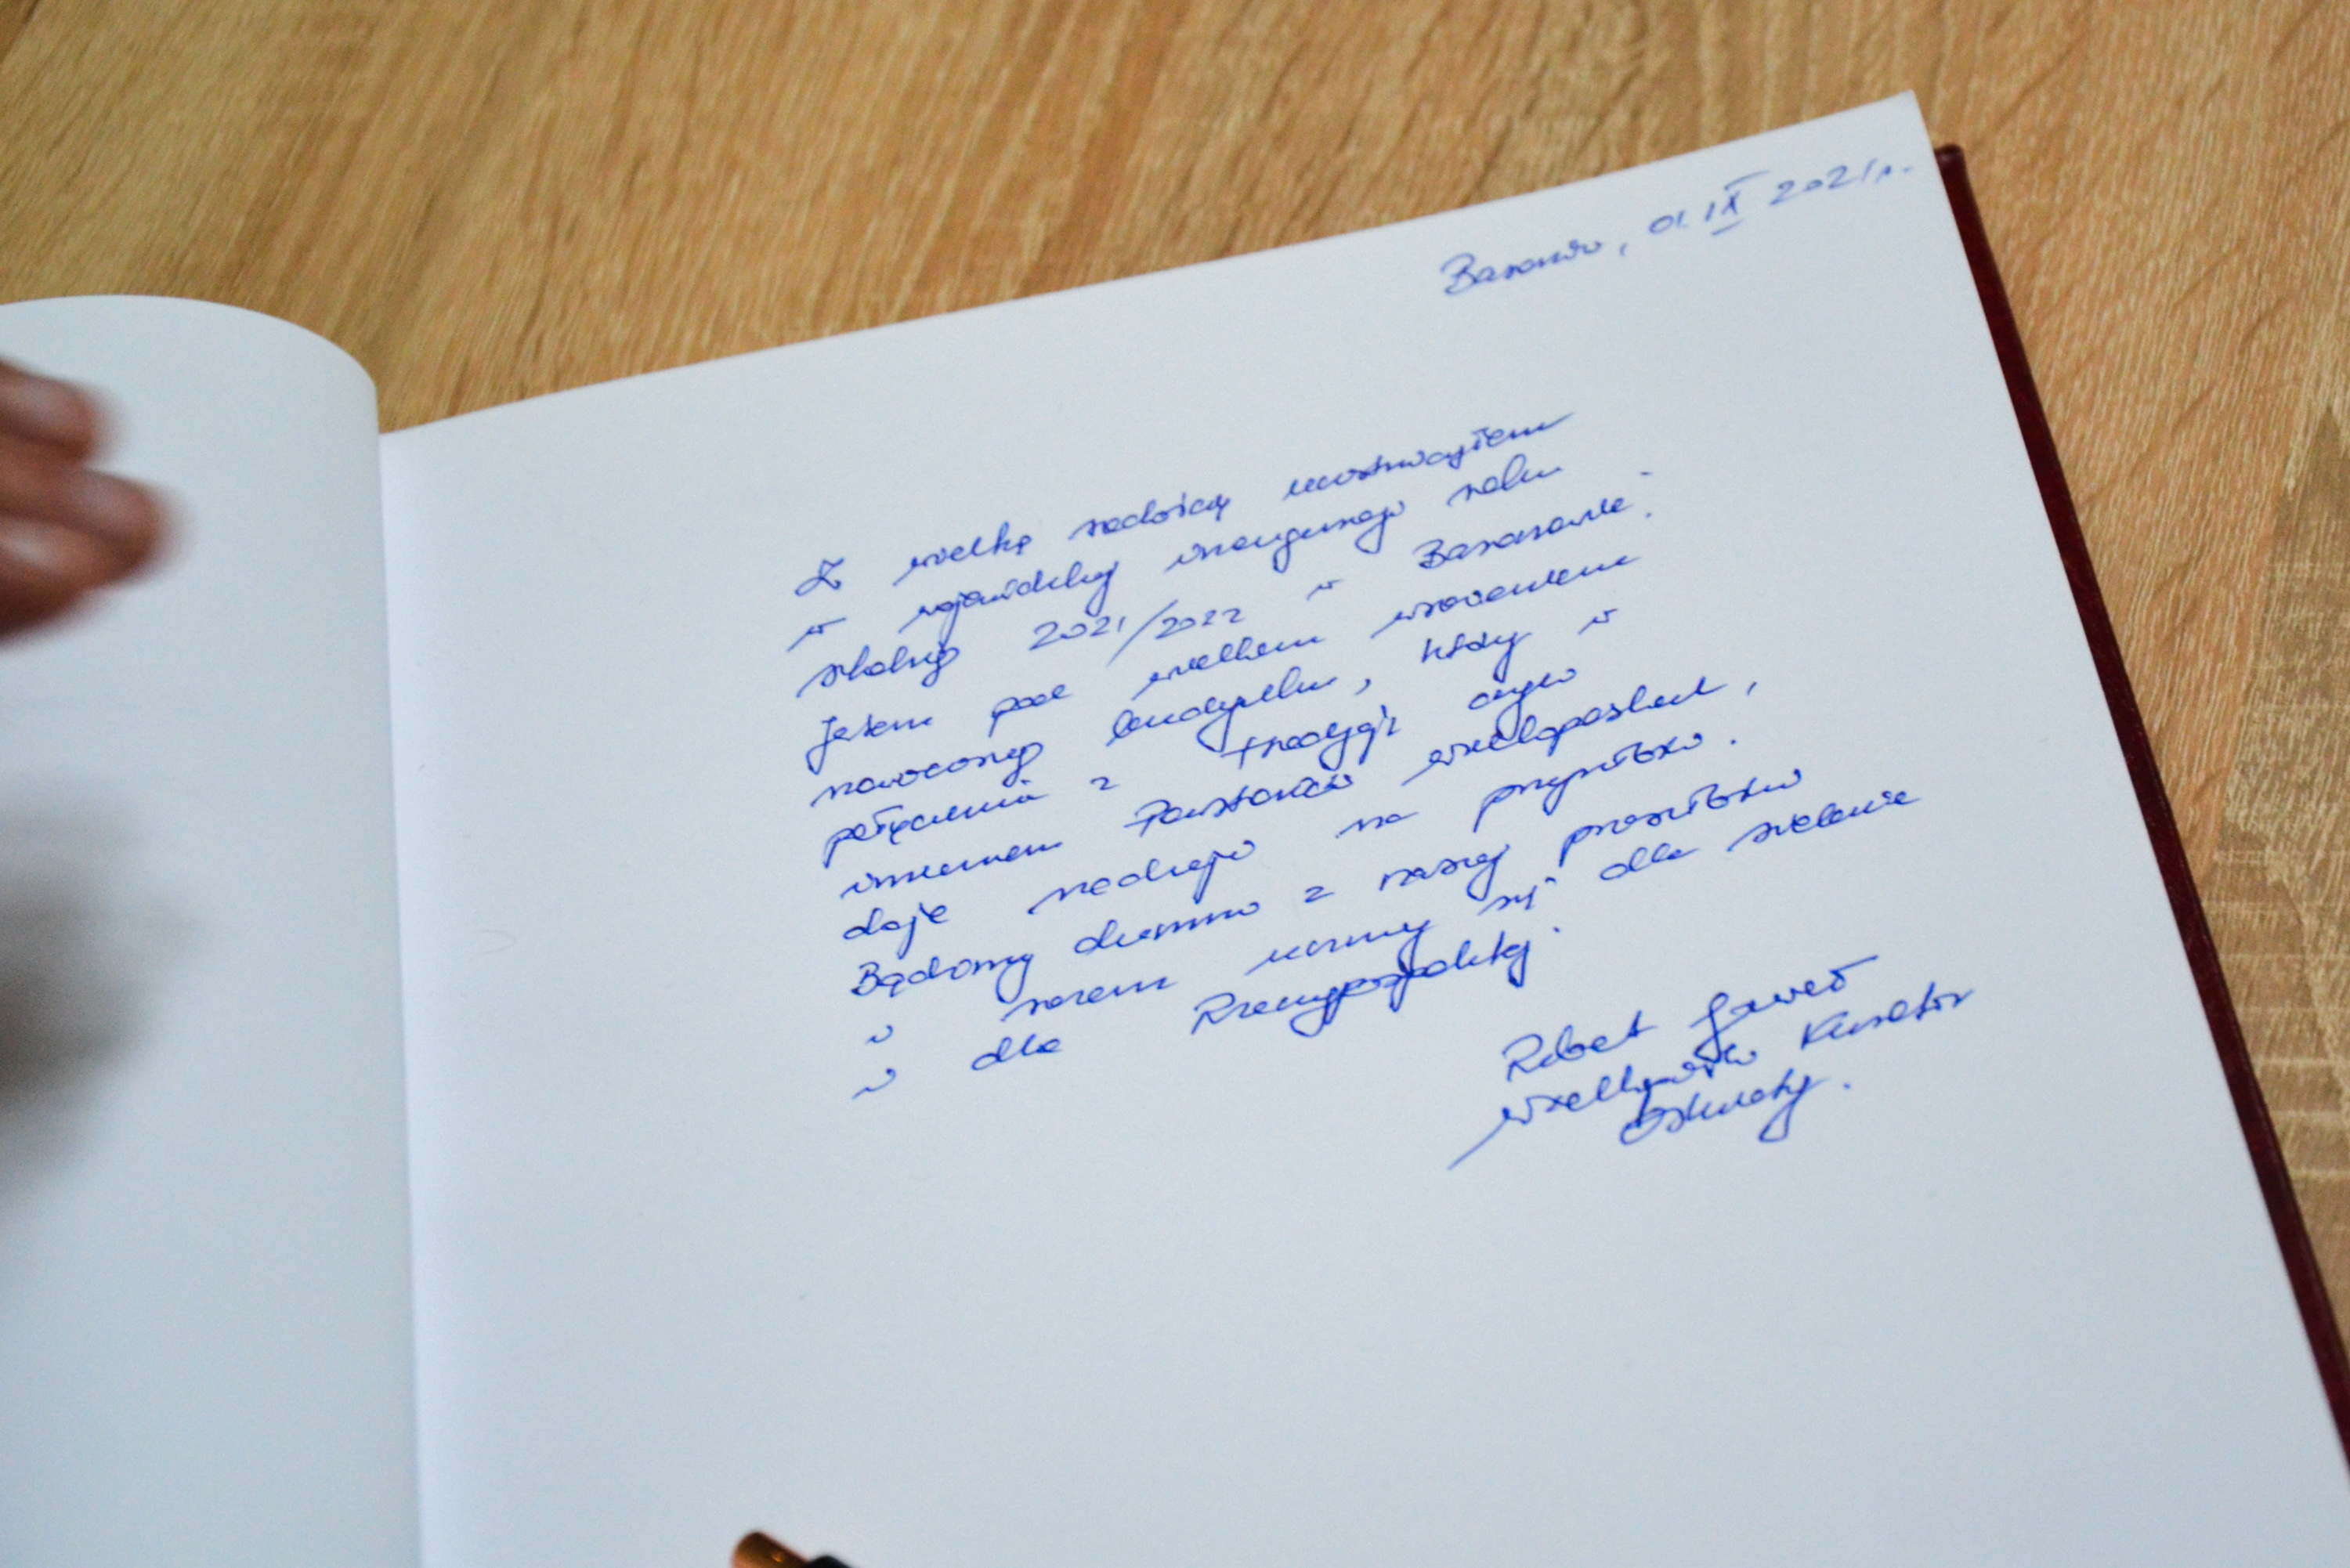 Baranów, 01. IX 2021 r.
Z wielką radością uczestniczyłem
w wojewódzkiej inauguracji roku
szkolnego 2021/2022 w Baranowie.
Jestem pod wielkim wrażeniem
nowoczesnego budynku, który w
połączeniu z tradycją czyli
imieniem Powstańców Wielkopolskich,
daje nadzieję na przyszłość.
Bądźmy dumni z naszej przeszłości
i razem uczmy się dla siebie
i dla Rzeczypospolitej.
Robert Gaweł
Wielkopolski Kurator
Oświaty.